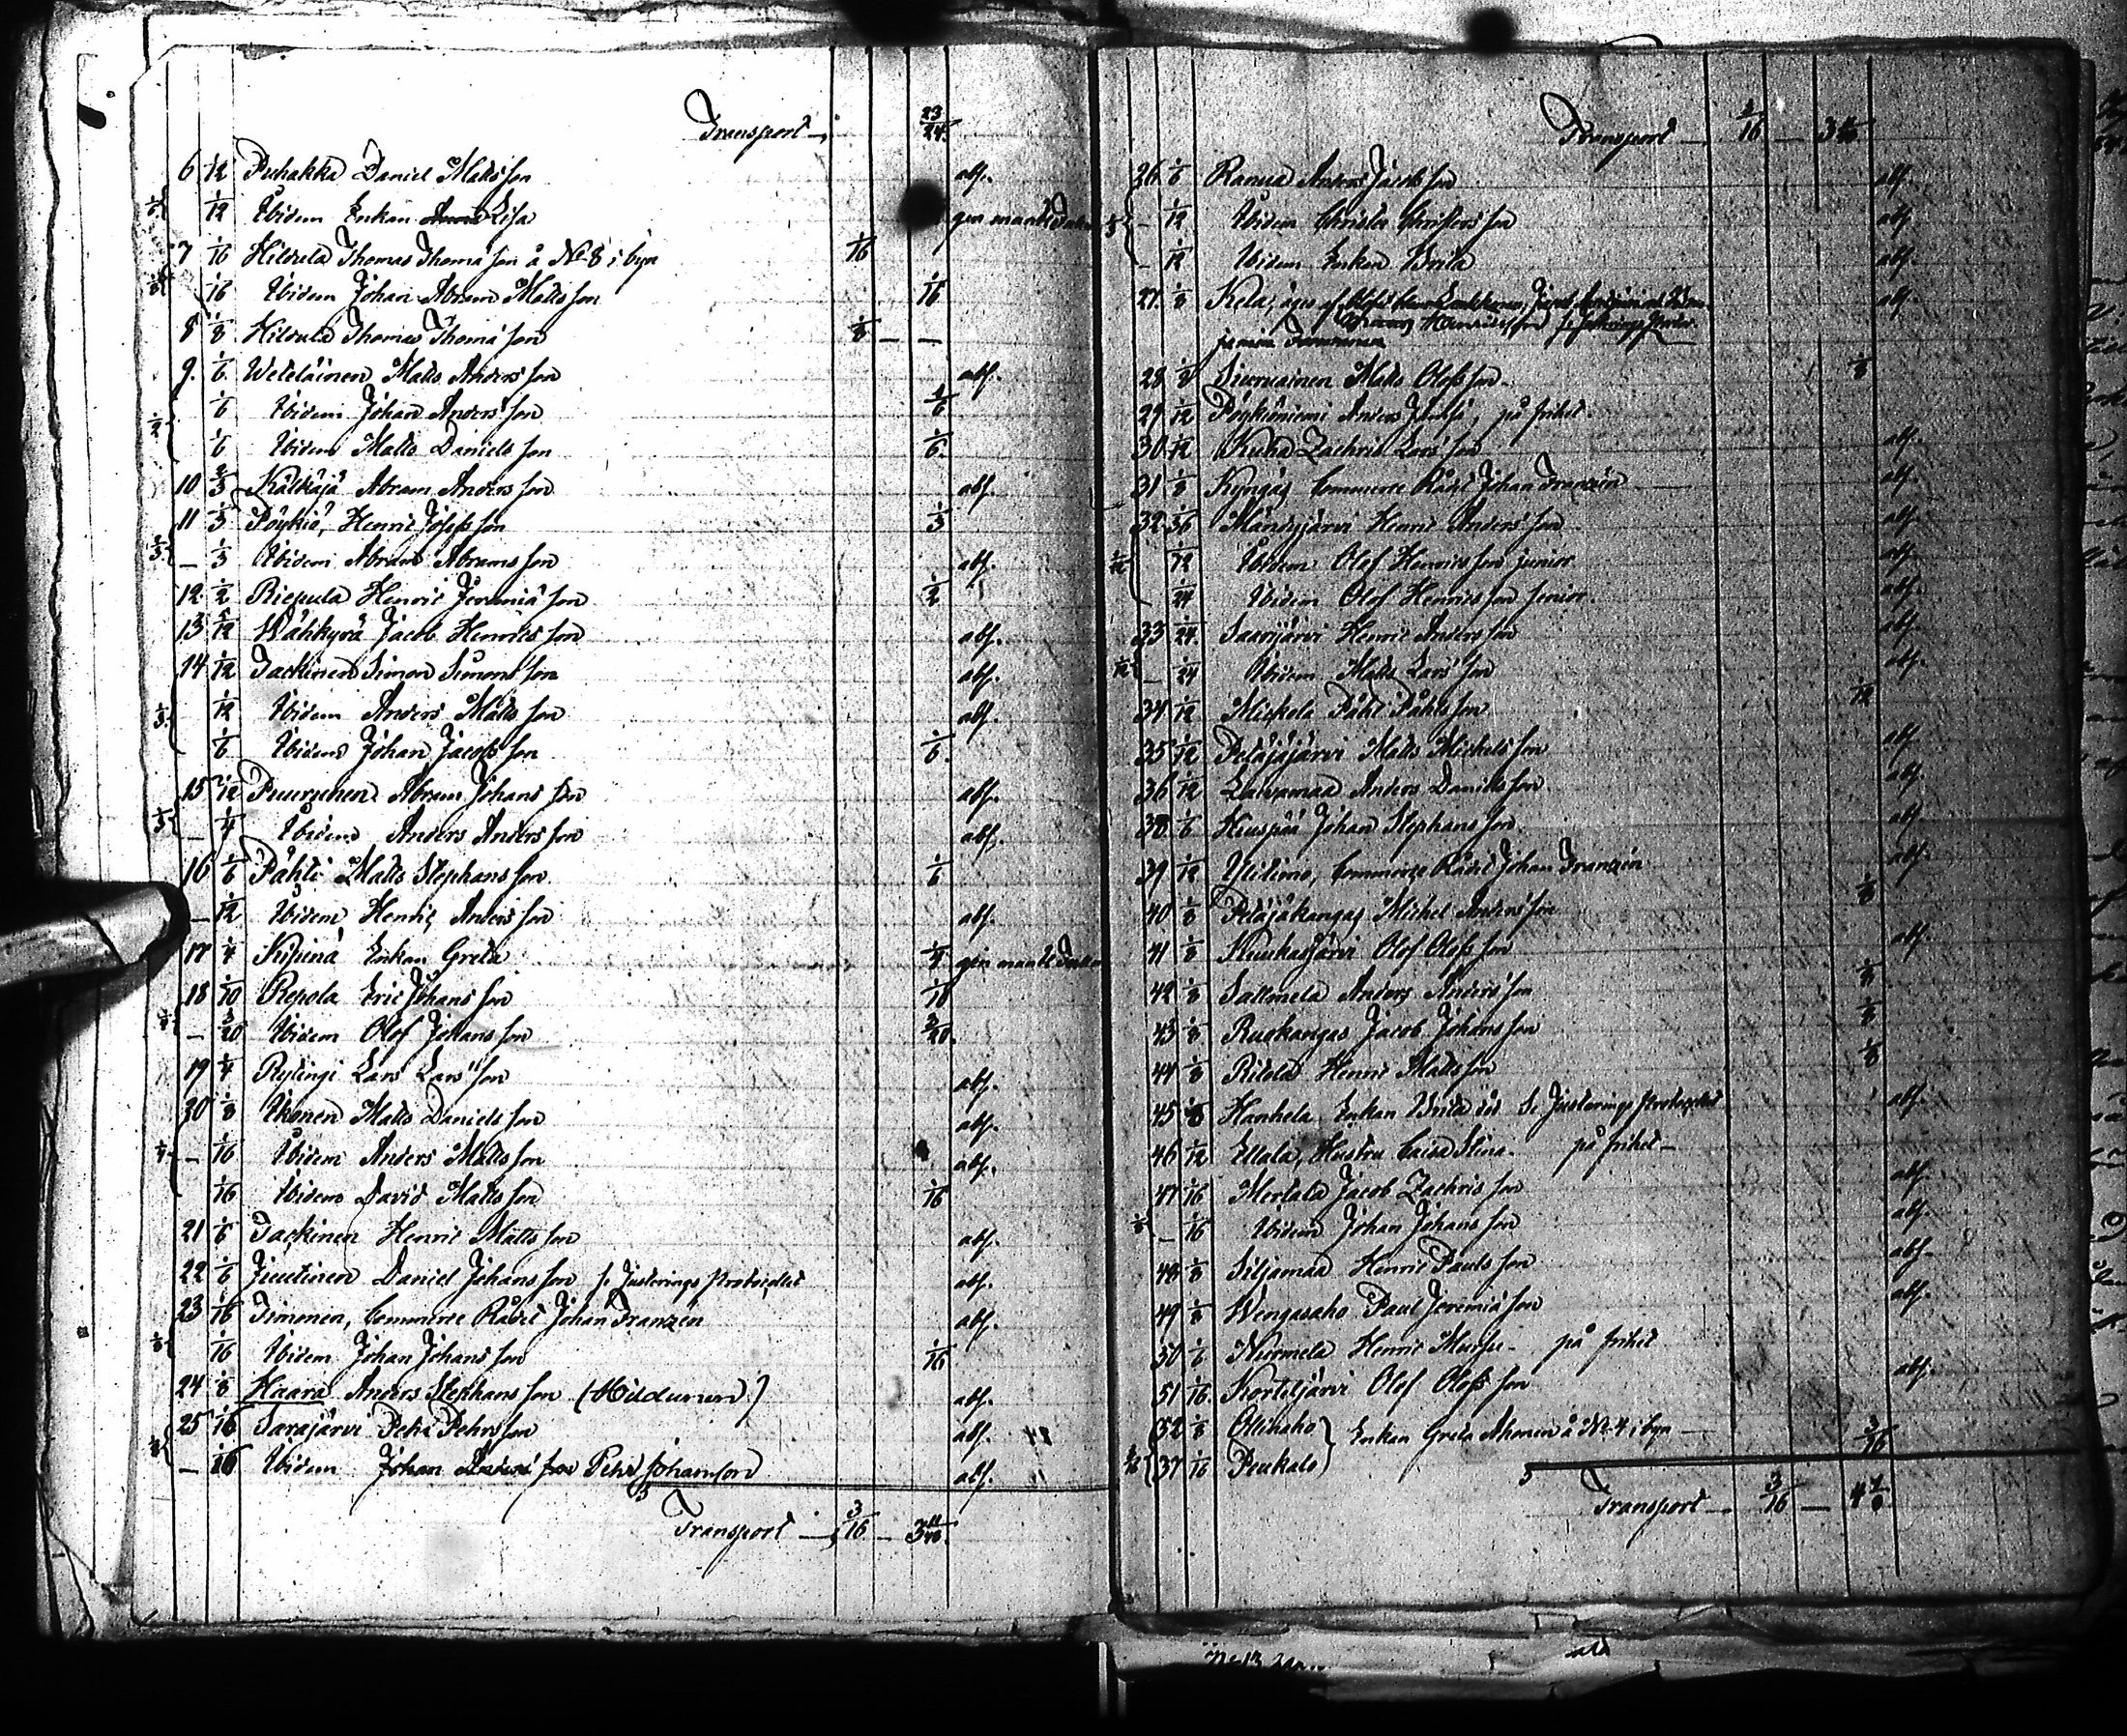 Transport 23/24.
6 1/12 Puhakka Daniel Matts son abs.
1/12 Ibidem Enkan Lisa gen mantl
7 1/16 Hildula Thomas Thomæ son å N:o 8 i byn 1/16
1/16 Ibidem Johan Abram Matts son 1/16
8 1/8 Hildula Thomas Thomæ son 1/8 — —
9. 1/6 Weteläinen Matts Anders son abs.
1/6 Ibidem Johan Anders son 1/6
1/6 Ibidem Matts Daniels son 1/6.
10 2/3 Kälkäjä Abram Anders son abs.
11 1/3 Pöykiö, Henric Josephs son 1/3
— 1/3 Ibidem Abram Abrams son abs.
12 1/2 Riepula Henric Jeremiæ son 1/2
13 5/12 Wähkyrä Jacob Henrics son abs.
14 1/12 Jackinen Simon Simons son abs.
1/12 Ibidem Anders Matts son abs.
1/6 Ibidem Johan Jacobs son 1/6.
15 1/12 Puurunen Abram Johans son abs.
— 1/4 Ibidem Anders Anders son abs.
16 1/6 Påhti Matts Stephans son 1/6
— 1/12 Ibidem Henric Anders son abs.
17 1/4 Kipinä Enkan Greta 1/4 gen mantl
18 1/10 Repola Eric Johans son 1/10
— 3/20 Ibidem Olof Johans son 3/20.
19 1/4 Rytingi Lars Lars son abs.
20 1/8 Ikonen Matts Daniels son abs.
— 1/16 Ibidem Anders Matts son abs.
1/16 Ibidem David Matts son 1/16
21 1/6 Jackinen Henric Matts son abs.
22 1/6 Juutinen Daniel Johans son se Justerings Protocollet abs.
23 1/16 Timonen, Commerce Rådet Johan Franzén abs.
1/16 Ibidem Johan Johans son 1/16
24 1/8 Haara Anders Stephans son abs.
25 1/16 Sarajärvi Pehr Pehrs son abs.
— 1/16 Ibidem Johan Anders son Pehr Johansson abs.
Transport — 3/16 — 3 11/48.
Transport 3/16 — 3 11/48
26 1/6 Ranua Anders Jacobs son abs.
— 1/12 Ibidem Christer Christers son abs.
— 1/12 Ibidem Enkan Brita abs.
27. 1/8 Kela, äges af abs.
Henricsson se Justerings Protoc.
28 1/8 Siuruainen Matts Olofs son 1/8
29 1/12 Pöykiöniemi Anders på frihet.
30 1/12 Kuha Zachris Lars son abs.
31 1/8 Kyngäs Commerce Rådet Johan Franzén abs.
32 1/36 Mändyjärvi Henric Anders son abs.
1/72 Ibidem Olof Henrics son junior abs.
1/24 Ibidem Olof Henrics son senior. abs.
33 1/24. Saarijärvi Henric Anders son abs.
— 1/24 Ibidem Matts Lars son abs.
34 1/12 Mickola Påhl Påhls son 1/12
35 1/12 Petäjäjärvi Matts Michels son abs.
36 1/12 Laivamaa Anders Daniels son abs.
38 1/6 Kuuspää Johan Stephans son abs.
39 1/12 Ylisimo, Commerce Rådet Johan Franzén abs.
40 1/8 Petäjäkangas Michel Anders son 1/8
41 1/8 Kuukasjärvi Olof Olofs son abs.
42 1/8 Sallmela Anders Anders son 1/8
43 1/8 Ruokangas Jacob Johans son 1/8
44 1/8 Ritola Henric Matts son 1/8
45 1/8 Hanhela Enkan Brita Se Justerings Protocollet abs.
46 1/12 Ellala, Hustru Caisa Stina. på frihet —
47 1/16 Mertala Jacob Zachris son abs.
— 1/16 Ibidem Johan Johans son abs.
48 1/8 Siljamaa Henric Pauls son abs.
49 1/8 Wengasaho Paul Jeremiæ son abs.
50 1/6 Nurmela Henric på frihet
51 1/16. Korteljärvi Olof Olofs son abs.
52 1/8 Ollinaho } Enkan Greta Ahonen å N:o 4 i byn —
37 1/16 Peukalo } 3/16
Transport — 3/16 — 4 1/8